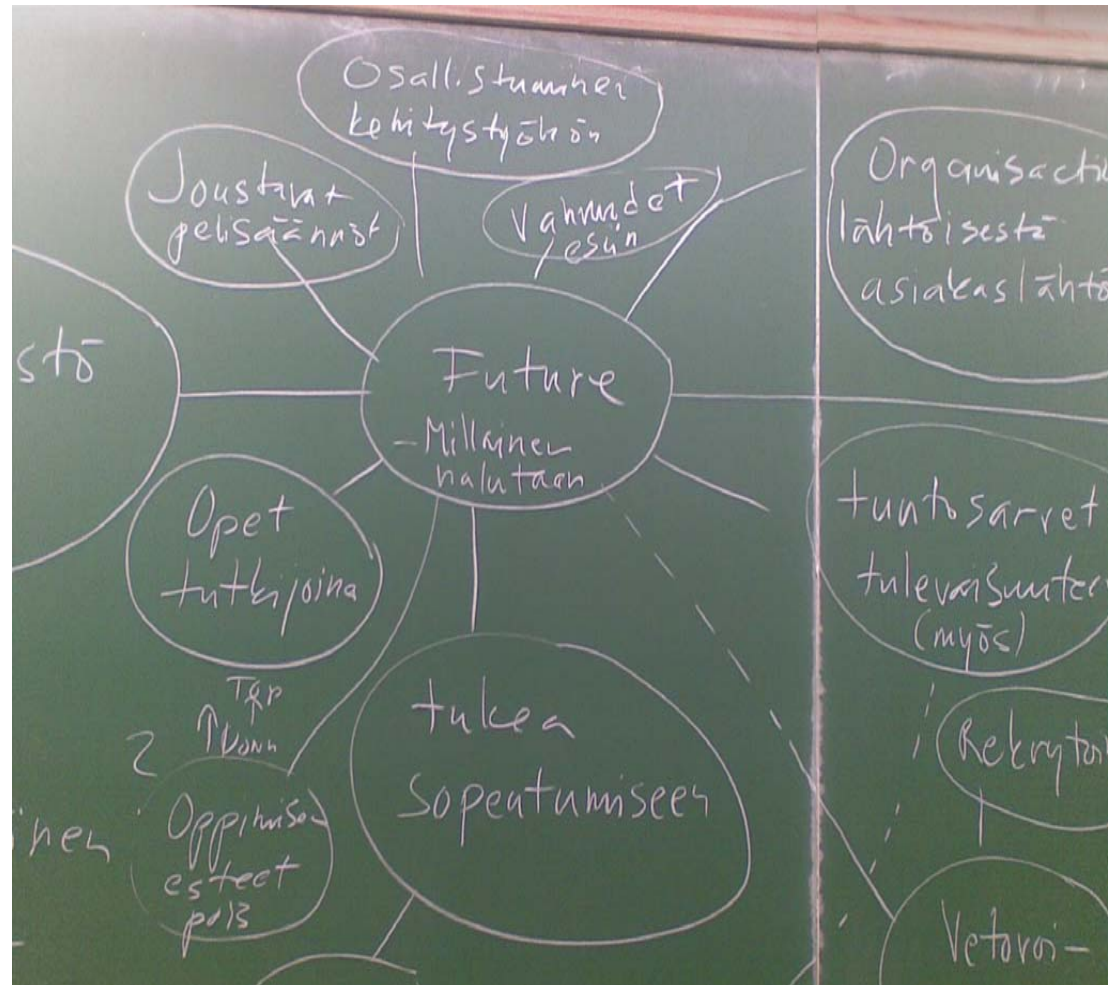 Osallistuminen
kehitystyöhön
Joustavat
pelisäännöt
Vahvuudet
esiin
Organisaatio
lähtöisestä
asiakaslähtö
stö
Future
- Millainen
halutaan
Opet
tutkijoina
tuntosarvet
tulevaisuutee
(myös)
Top
↑ Down
2
tukea
sopeutumiseen
Rekrytoi
Oppimisen
esteet
pois
inen
Vetovoi-